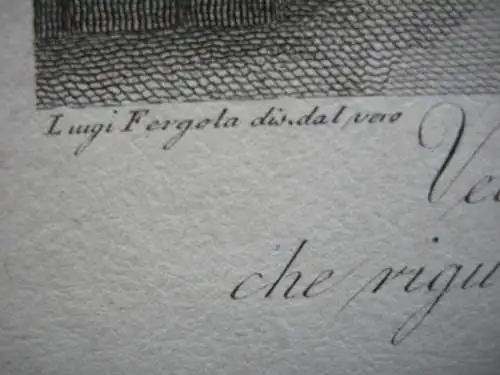 Luigi Fergola dis. dal vero
Ve
che rigu